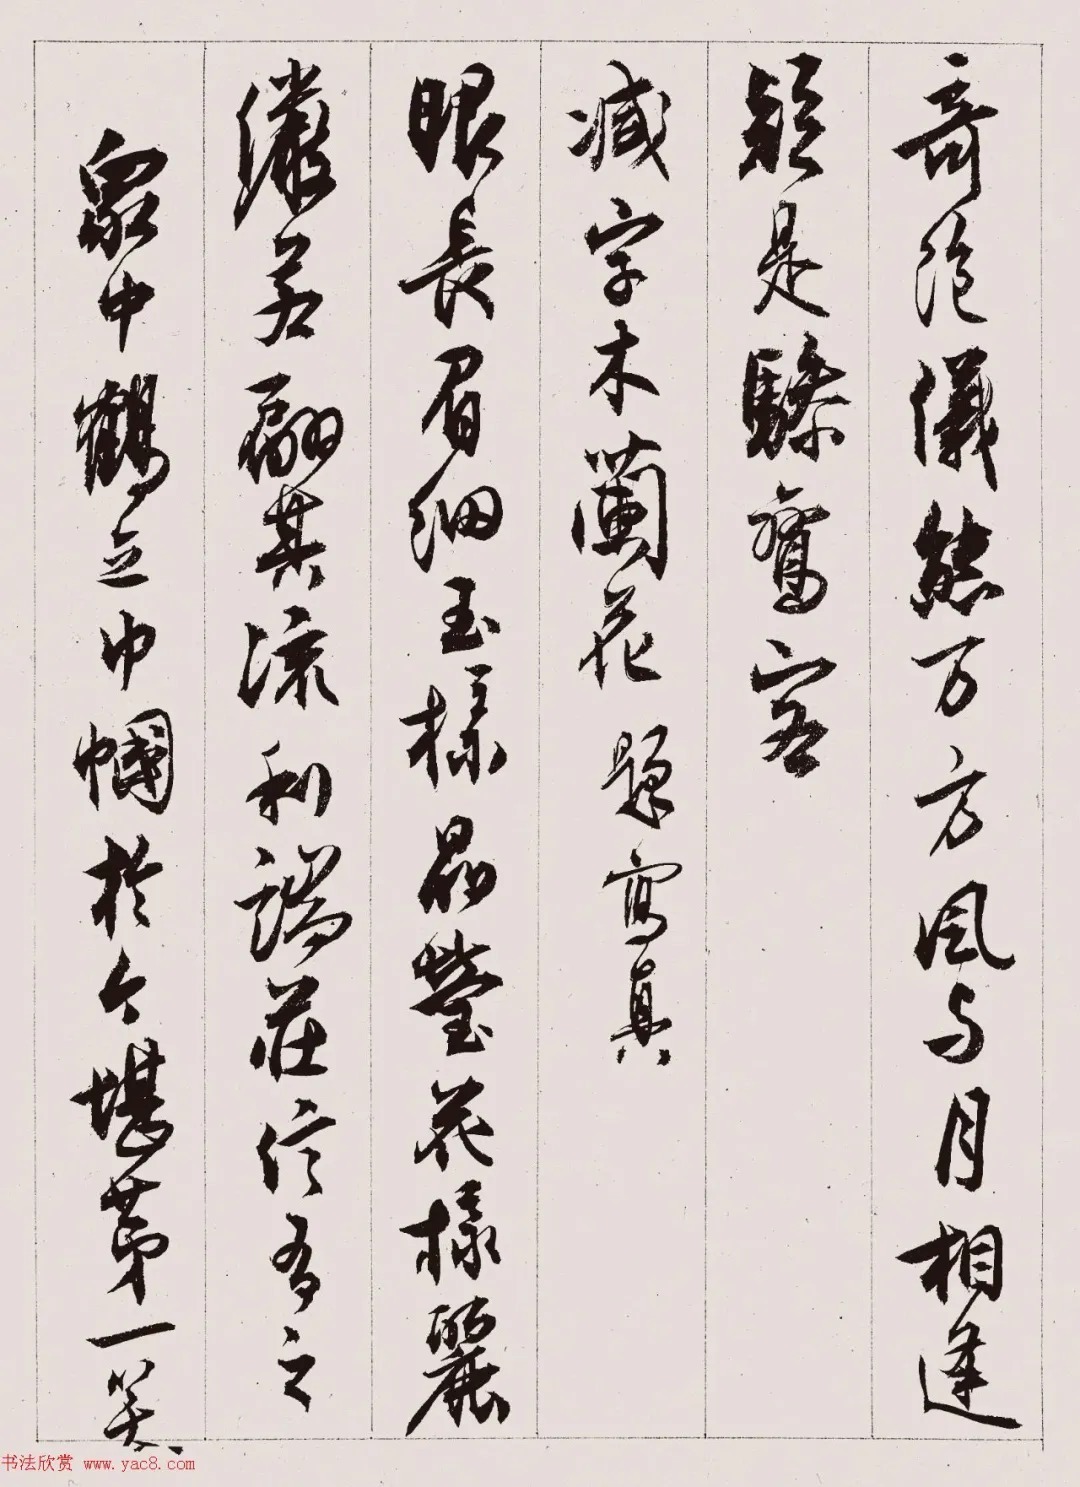 奇儀態万方風与月相逢
疑是驂鸞客
減字木蘭花 題寫真
眼長眉細玉樣晶瑩花樣麗
若翩其流利端莊信有之
眾中鶴立巾幗於今堪第一
书法欣赏 www.yac8.com